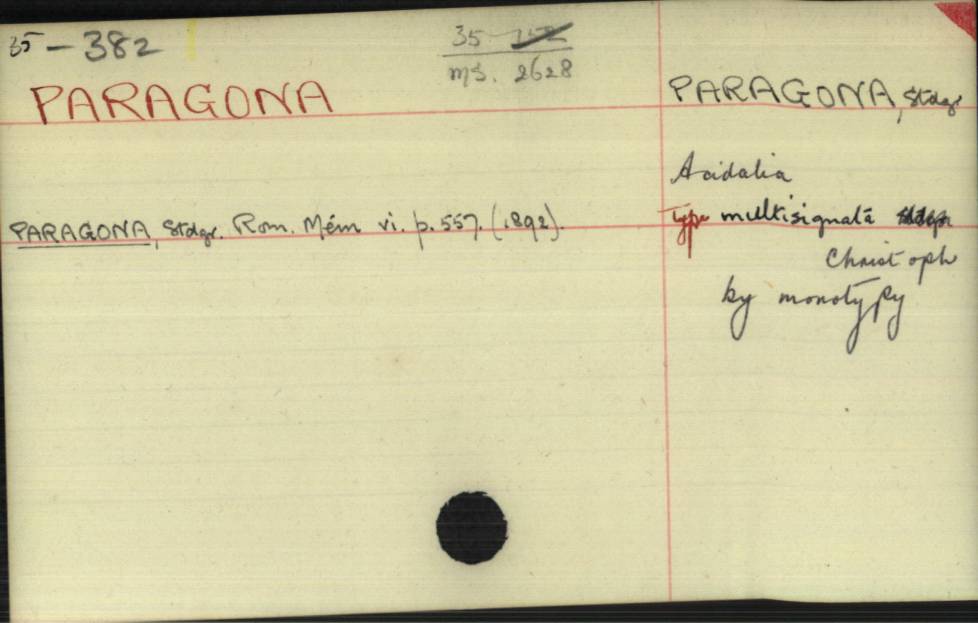 35-382
35 152
ms. 2628
PARAGONA
PARAGONA, Stdgr. Rom. Mém vi. p. 557. (1892).
PARAGONA, Stdgr
Acidalia
Type multisignata Stdgr
Christoph
by monotypy